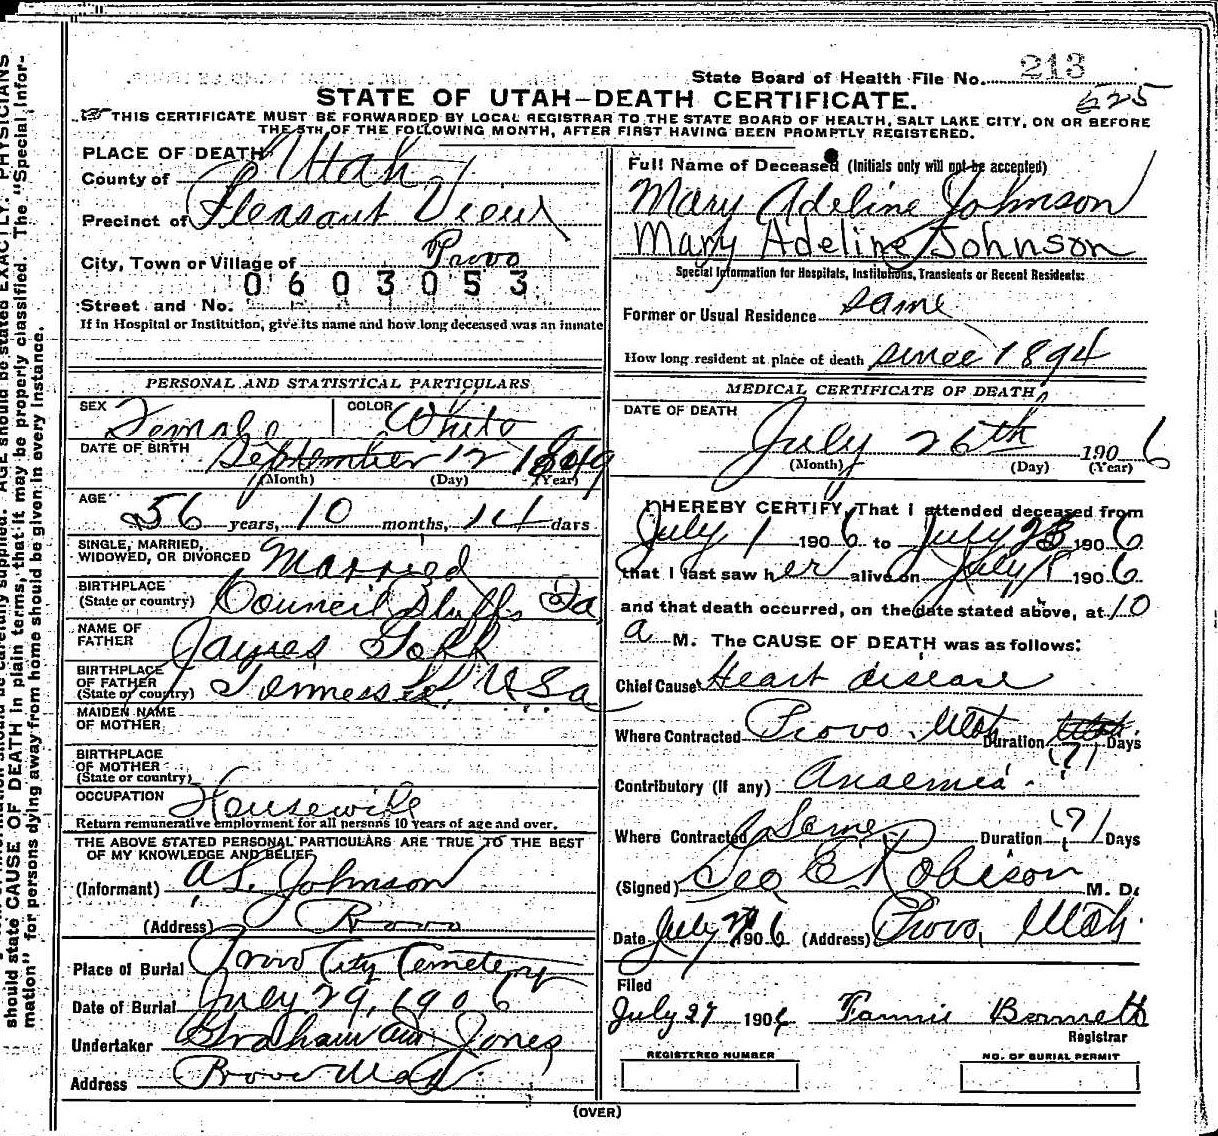 State Board of Health File No. 213
625
STATE OF UTAH—DEATH CERTIFICATE.
THIS CERTIFICATE MUST BE FORWARDED BY LOCAL REGISTRAR TO THE STATE BOARD OF HEALTH, SALT LAKE CITY, ON OR BEFORE
THE 5TH OF THE FOLLOWING MONTH, AFTER FIRST HAVING BEEN PROMPTLY REGISTERED.
PLACE OF DEATH
County of Utah
Precinct of Pleasant View
City, Town or Village of Provo
0603053
Street and No.
If in Hospital or Institution, give its name and how long deceased was an inmate
PERSONAL AND STATISTICAL PARTICULARS
SEX Female COLOR White
DATE OF BIRTH September 12 1849
(Month) (Day) (Year)
AGE 56 years, 10 months, 14 days
SINGLE, MARRIED,
WIDOWED, OR DIVORCED Married
BIRTHPLACE
(State or country) Council Bluffs Ia
NAME OF
FATHER James
BIRTHPLACE
OF FATHER
(State or country) Tennessee U.S.a
MAIDEN NAME
OF MOTHER
BIRTHPLACE
OF MOTHER
(State or country)
OCCUPATION Housewife
Return remunerative employment for all persons 10 years of age and over.
THE ABOVE STATED PERSONAL PARTICULARS ARE TRUE TO THE BEST
OF MY KNOWLEDGE AND BELIEF
(Informant) A L. Johnson
(Address) Provo
Place of Burial Provo City Cemetery
Date of Burial July 29, 1906
Undertaker Graham and Jones
Address Provo Utah
Full Name of Deceased (Initials only will not be accepted)
Mary Adeline Johnson
Mary Adeline Johnson
Special Information for Hospitals, Institutions, Transients or Recent Residents:
Former or Usual Residence same
How long resident at place of death since 1894
MEDICAL CERTIFICATE OF DEATH
DATE OF DEATH
July 26th 1906
(Month) (Day) (Year)
I HEREBY CERTIFY, That I attended deceased from
July 1 1906 to July 1906
that I last saw her alive on July 1906
and that death occurred, on the date stated above, at 10
a M. The CAUSE OF DEATH was as follows:
Chief Cause Heart disease
Where Contracted Provo Utah Duration (?) Days
Contributory (if any) Anaemia
Where Contracted Same Duration (?) Days
(Signed) Geo E Robison M. D.
Date July 1906 (Address) Provo, Utah
Filed
July 27 1906 Fannie
Registrar
REGISTERED NUMBER
NO. OF BURIAL PERMIT
(OVER)